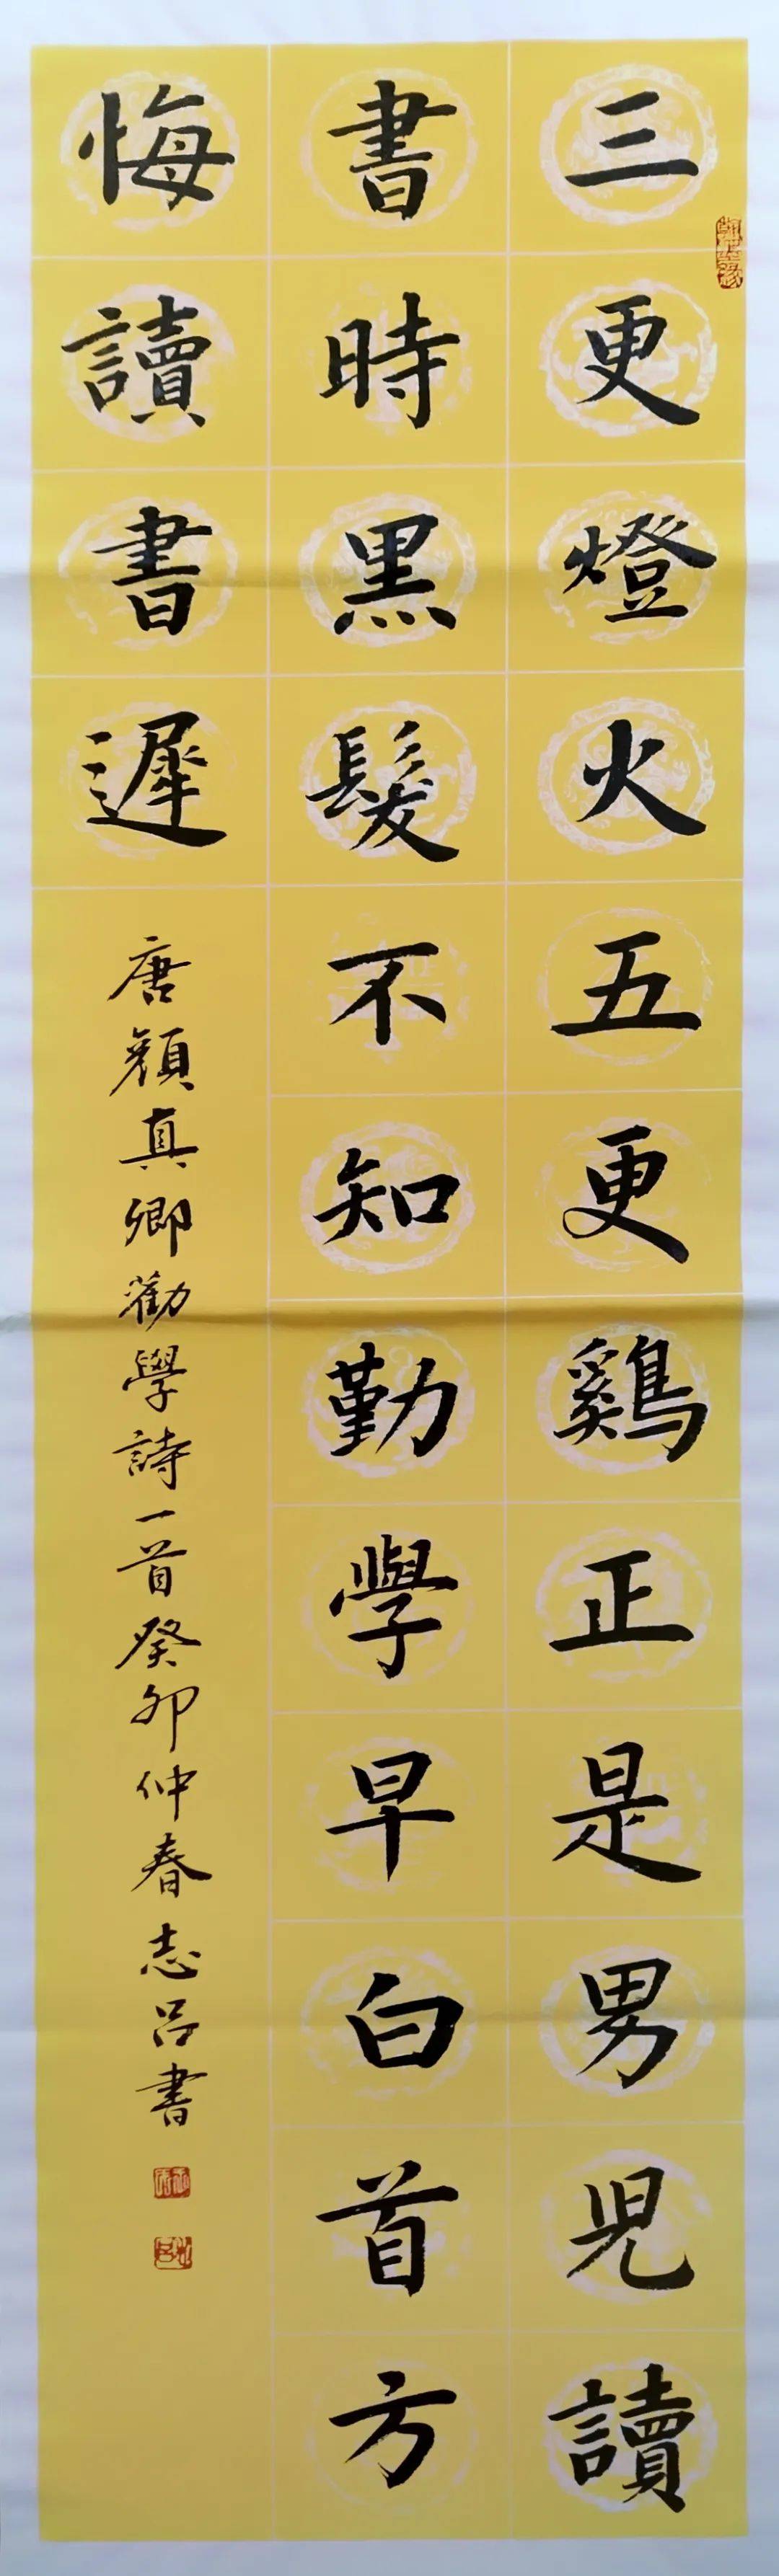 三更燈火五更鷄正是男兒讀
書時黑髮不知勤學早白首方
悔讀書遲
唐顏真卿勸學詩一首癸卯仲春志呂書